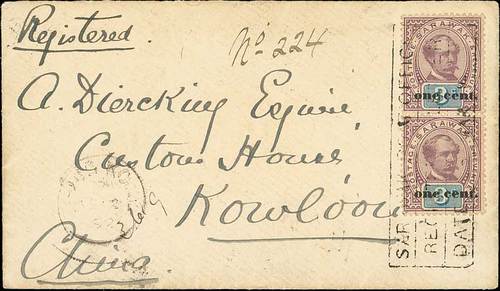 Registered.
No 224
A. Diercking Esquire
Custom House
Kowloon
China.
POSTAGE SARAWAK
one cent.
3
POSTAGE SARAWAK
one cent.
3
SAR
OFFICE
REG
DAT